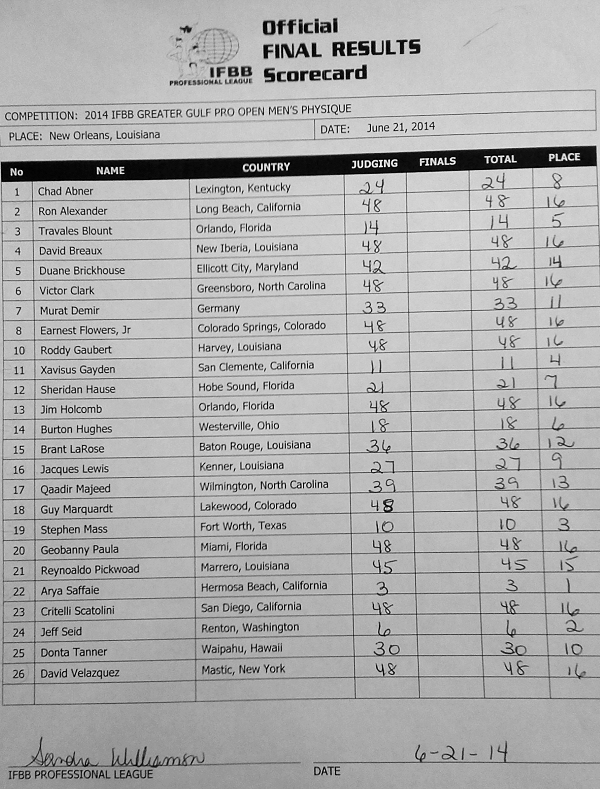 Official
FINAL RESULTS
IFBB Scorecard
PROFESSIONAL LEAGUE
COMPETITION: 2014 IFBB GREATER GULF PRO OPEN MEN'S PHYSIQUE
PLACE: New Orleans, Louisiana DATE: June 21, 2014
No NAME COUNTRY JUDGING FINALS TOTAL PLACE
1 Chad Abner Lexington, Kentucky 24 24 8
2 Ron Alexander Long Beach, California 48 48 16
3 Travales Blount Orlando, Florida 14 14 5
4 David Breaux New Iberia, Louisiana 48 48 16
5 Duane Brickhouse Ellicott City, Maryland 42 42 14
6 Victor Clark Greensboro, North Carolina 48 48 16
7 Murat Demir Germany 33 33 11
8 Earnest Flowers, Jr Colorado Springs, Colorado 48 48 16
10 Roddy Gaubert Harvey, Louisiana 48 48 16
11 Xavisus Gayden San Clemente, California 11 11 4
12 Sheridan Hause Hobe Sound, Florida 21 21 7
13 Jim Holcomb Orlando, Florida 48 48 16
14 Burton Hughes Westerville, Ohio 18 18 6
15 Brant LaRose Baton Rouge, Louisiana 36 36 12
16 Jacques Lewis Kenner, Louisiana 27 27 9
17 Qaadir Majeed Wilmington, North Carolina 39 39 13
18 Guy Marquardt Lakewood, Colorado 48 48 16
19 Stephen Mass Fort Worth, Texas 10 10 3
20 Geobanny Paula Miami, Florida 48 48 16
21 Reynoaldo Pickwoad Marrero, Louisiana 45 45 15
22 Arya Saffaie Hermosa Beach, California 3 3 1
23 Critelli Scatolini San Diego, California 48 48 16
24 Jeff Seid Renton, Washington 6 6 2
25 Donta Tanner Waipahu, Hawaii 30 30 10
26 David Velazquez Mastic, New York 48 48 16
Sandra Williamson 6-21-14
IFBB PROFESSIONAL LEAGUE DATE